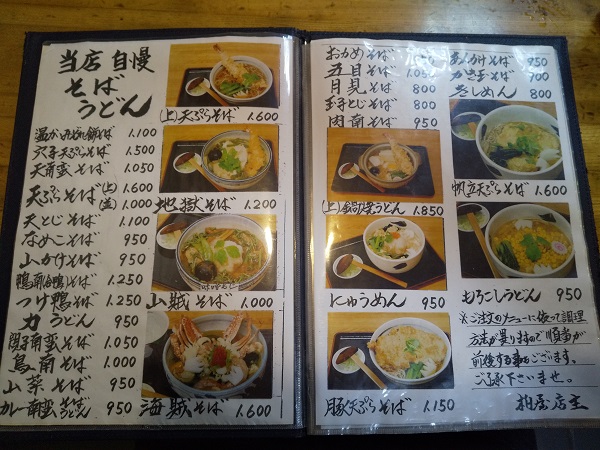 当店自慢
そば
うどん
穴子天ぷらそば 1.500
天南蛮そば 1.050
天ぷらそば (上) 1.600
(並) 1.000
天とじそば 1.100
なめこそば 950
山かけそば 950
鴨南蛮(鴨)そば 1.250
つけ鴨そば 1.250
力うどん 950
1.050
鳥南そば 1.000
山菜そば 950
カレー南蛮 そば うどん 950
(上)天ぷらそば 1.600
地獄そば 1.200
山賊そば 1.000
海賊そば 1.600
おかめそば 1.050
五目そば 1.050
月見そば 800
玉子とじそば 800
肉南そば 950
(上)鍋焼うどん 1.850
にゅうめん 950
豚天ぷらそば 1.150
あんかけそば 950
かき玉そば 700
きしめん 800
帆立天ぷらそば 1.600
もろこしうどん 950
※ご注文のメニューに依って調理
方法が異りますので順番が
前後する事もございます。
ご了承下さいませ。
柏屋店主